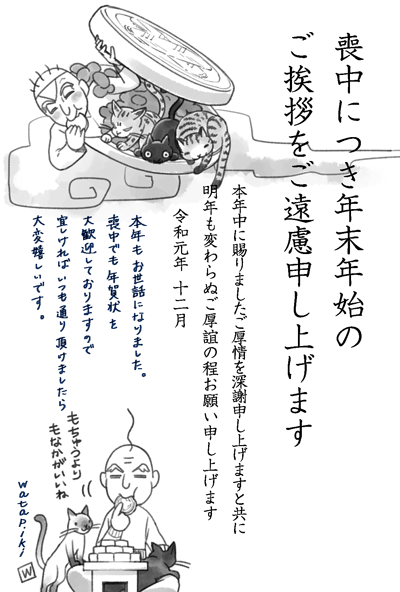 喪中につき年末年始の
ご挨拶をご遠慮申し上げます
本年中に賜りましたご厚情を深謝申し上げますと共に
明年も変わらぬご厚誼の程お願い申し上げます
令和元年 十二月
本年もお世話になりました。
喪中でも年賀状を
大歓迎しておりますので
宜しければいつも通り頂けましたら
大変嬉しいです。
もちゅうより
もなかがいいね
watapiki
W